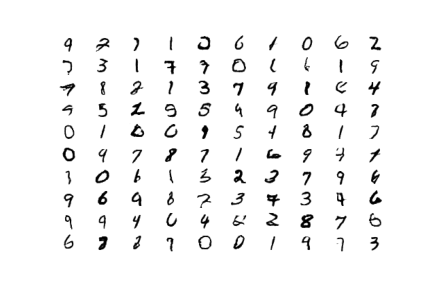 9 2 7 1 0 6 1 0 6 2
7 3 1 7 7 0 1 6 1 9
7 8 2 1 3 7 9 1 6 4
9 5 2 9 5 4 9 0 4 8
0 1 0 0 9 5 4 8 1 7
0 9 7 8 7 1 6 9 7 1
3 0 6 1 3 2 3 7 9 6
9 6 9 8 2 3 7 3 7 6
9 9 4 0 4 6 2 8 7 6
6 8 8 7 0 0 1 9 7 3